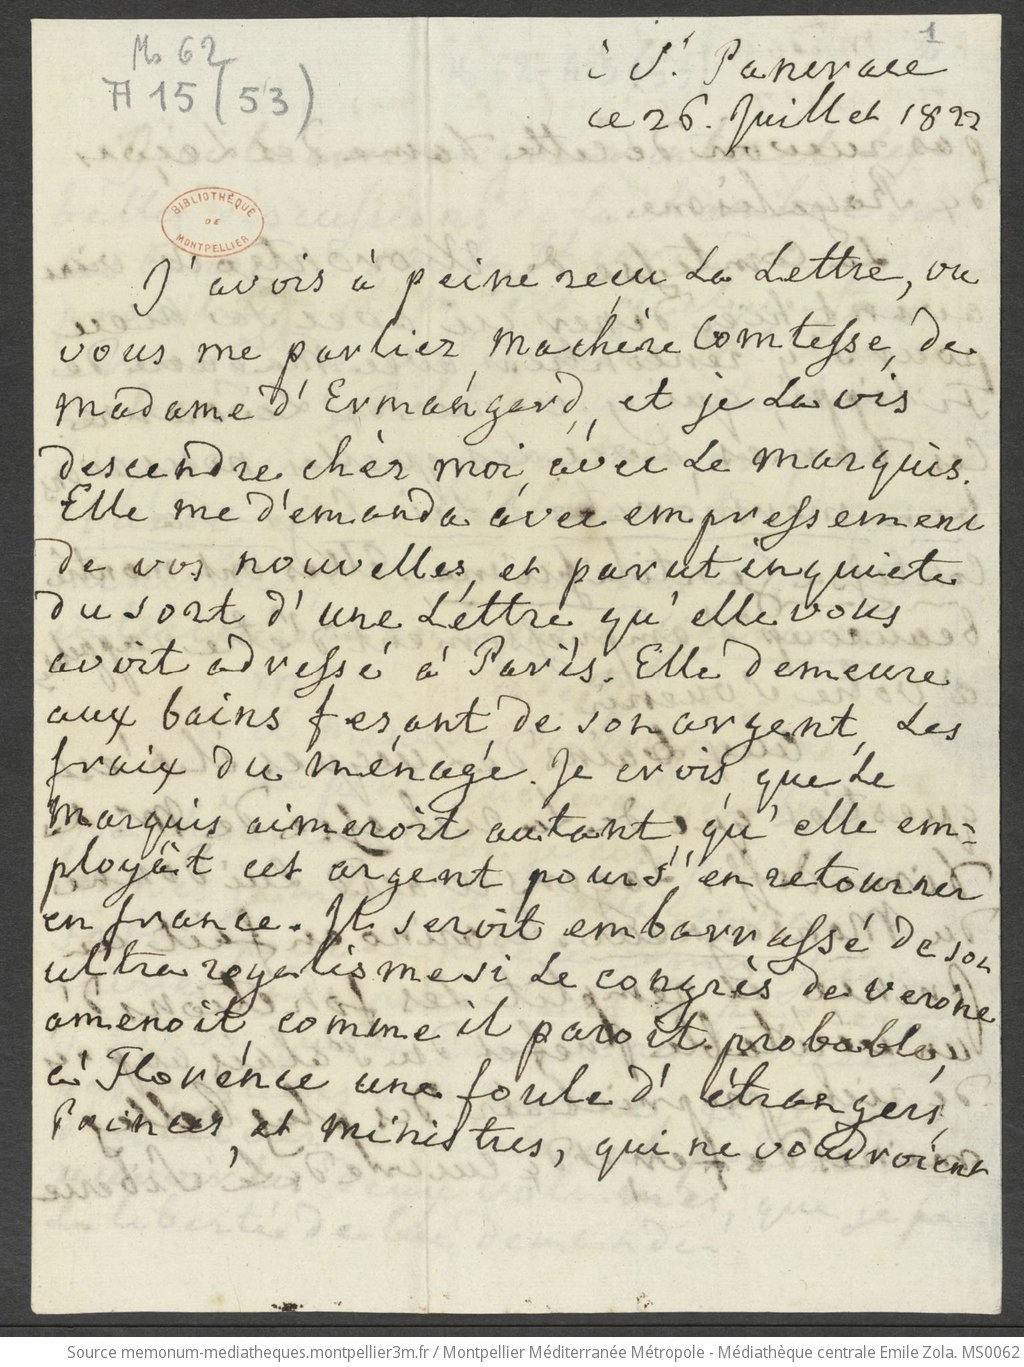 Ms 62
A 15 (53)
1
à St. Pancrace
ce 26. Juillet 1822
BIBLIOTHÈQUE
DE
MONTPELLIER
J'avois à peine reçu La Lettre, ou
vous me parliez, ma chère Comtesse, de
madame d'Ermangard, et je La vis
descendre chèz moi, avec Le marquis.
Elle me demanda avec empressement
de vos nouvelles, et parut inquiete
du sort d'une Lettre qu'elle vous
avoit adressé à Paris. Elle demeure
aux bains fesant de son argent, Les
fraix du ménage. Je crois, que Le
marquis aimeroit autant, qu'elle em=
ployât cet argent pour s'en retourner
en france. Il seroit embarrassé de son
ultra royalisme si Le congrès de verone
amenoit, comme il paroit probable,
à Florence une foule d'étrangers,
Princes, et ministres, qui ne voudroient
Source memonum-mediatheques.montpellier3m.fr / Montpellier Méditerranée Métropole - Médiathèque centrale Emile Zola. MS0062